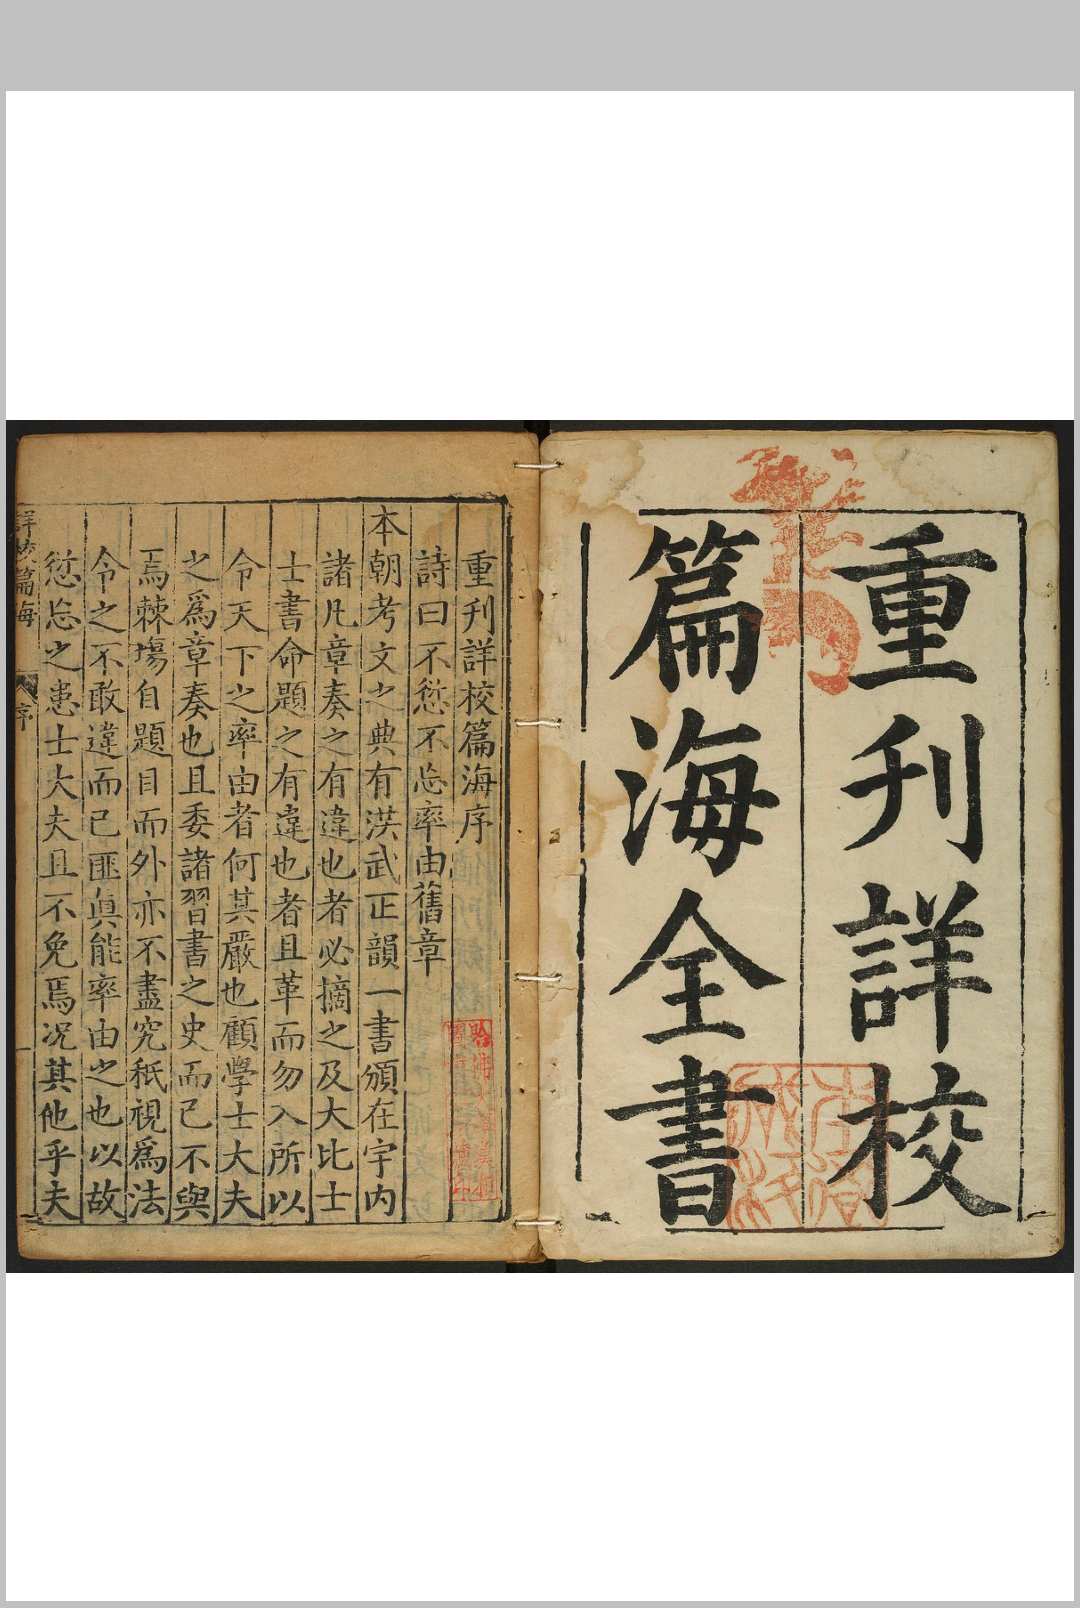 重刊詳校
篇海全書
重刊詳校篇海序
詩曰不愆不忘率由舊章
本朝考文之典有洪武正韻一書頒在宇内
諸凡章奏之有違也者必摘之及大比士
士書命題之有違也者且革而勿入所以
令天下之率由者何其嚴也顧學士大夫
之爲章奏也且委諸習書之史而已不與
焉棘場自題目而外亦不盡究秖視爲法
令之不敢違而已匪眞能率由之也以故
愆忘之患士大夫且不免焉况其他乎夫
詳校篇海
序
一